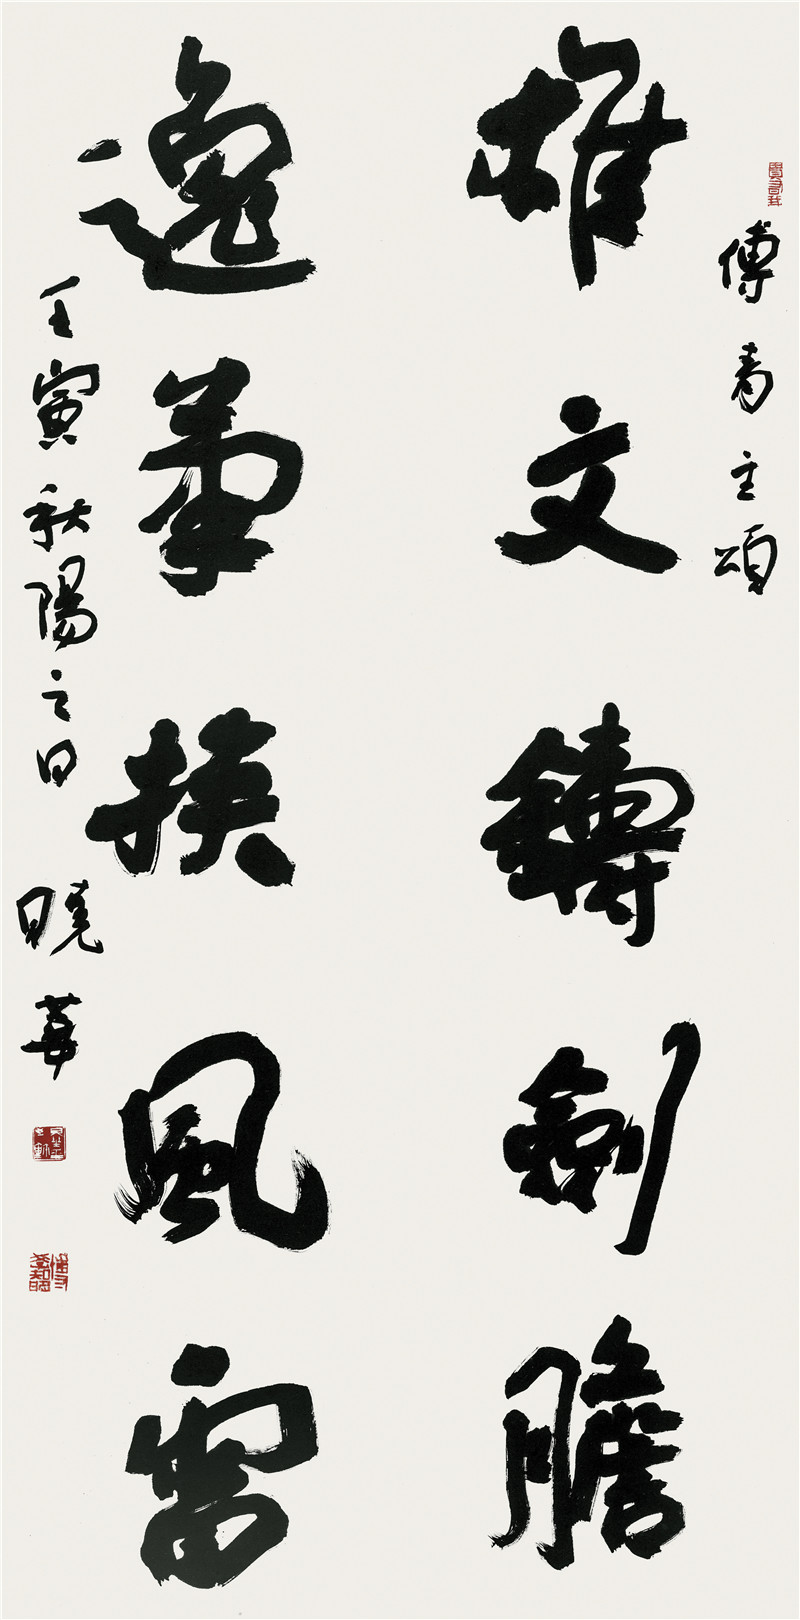 傅青主頌
雄文鑄劍膽
逸筆挾風雷
壬寅秋陽之日
曉華